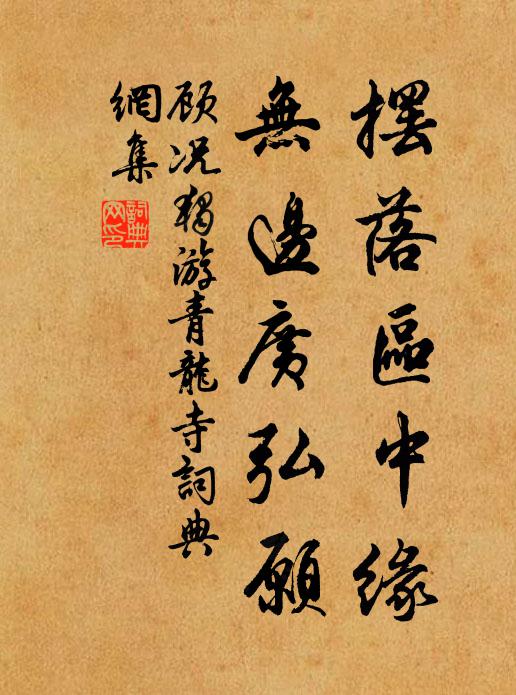 摆落區中緣
無邊廣弘願
顾况獨游青龍寺詞典
網集
詞典
网印